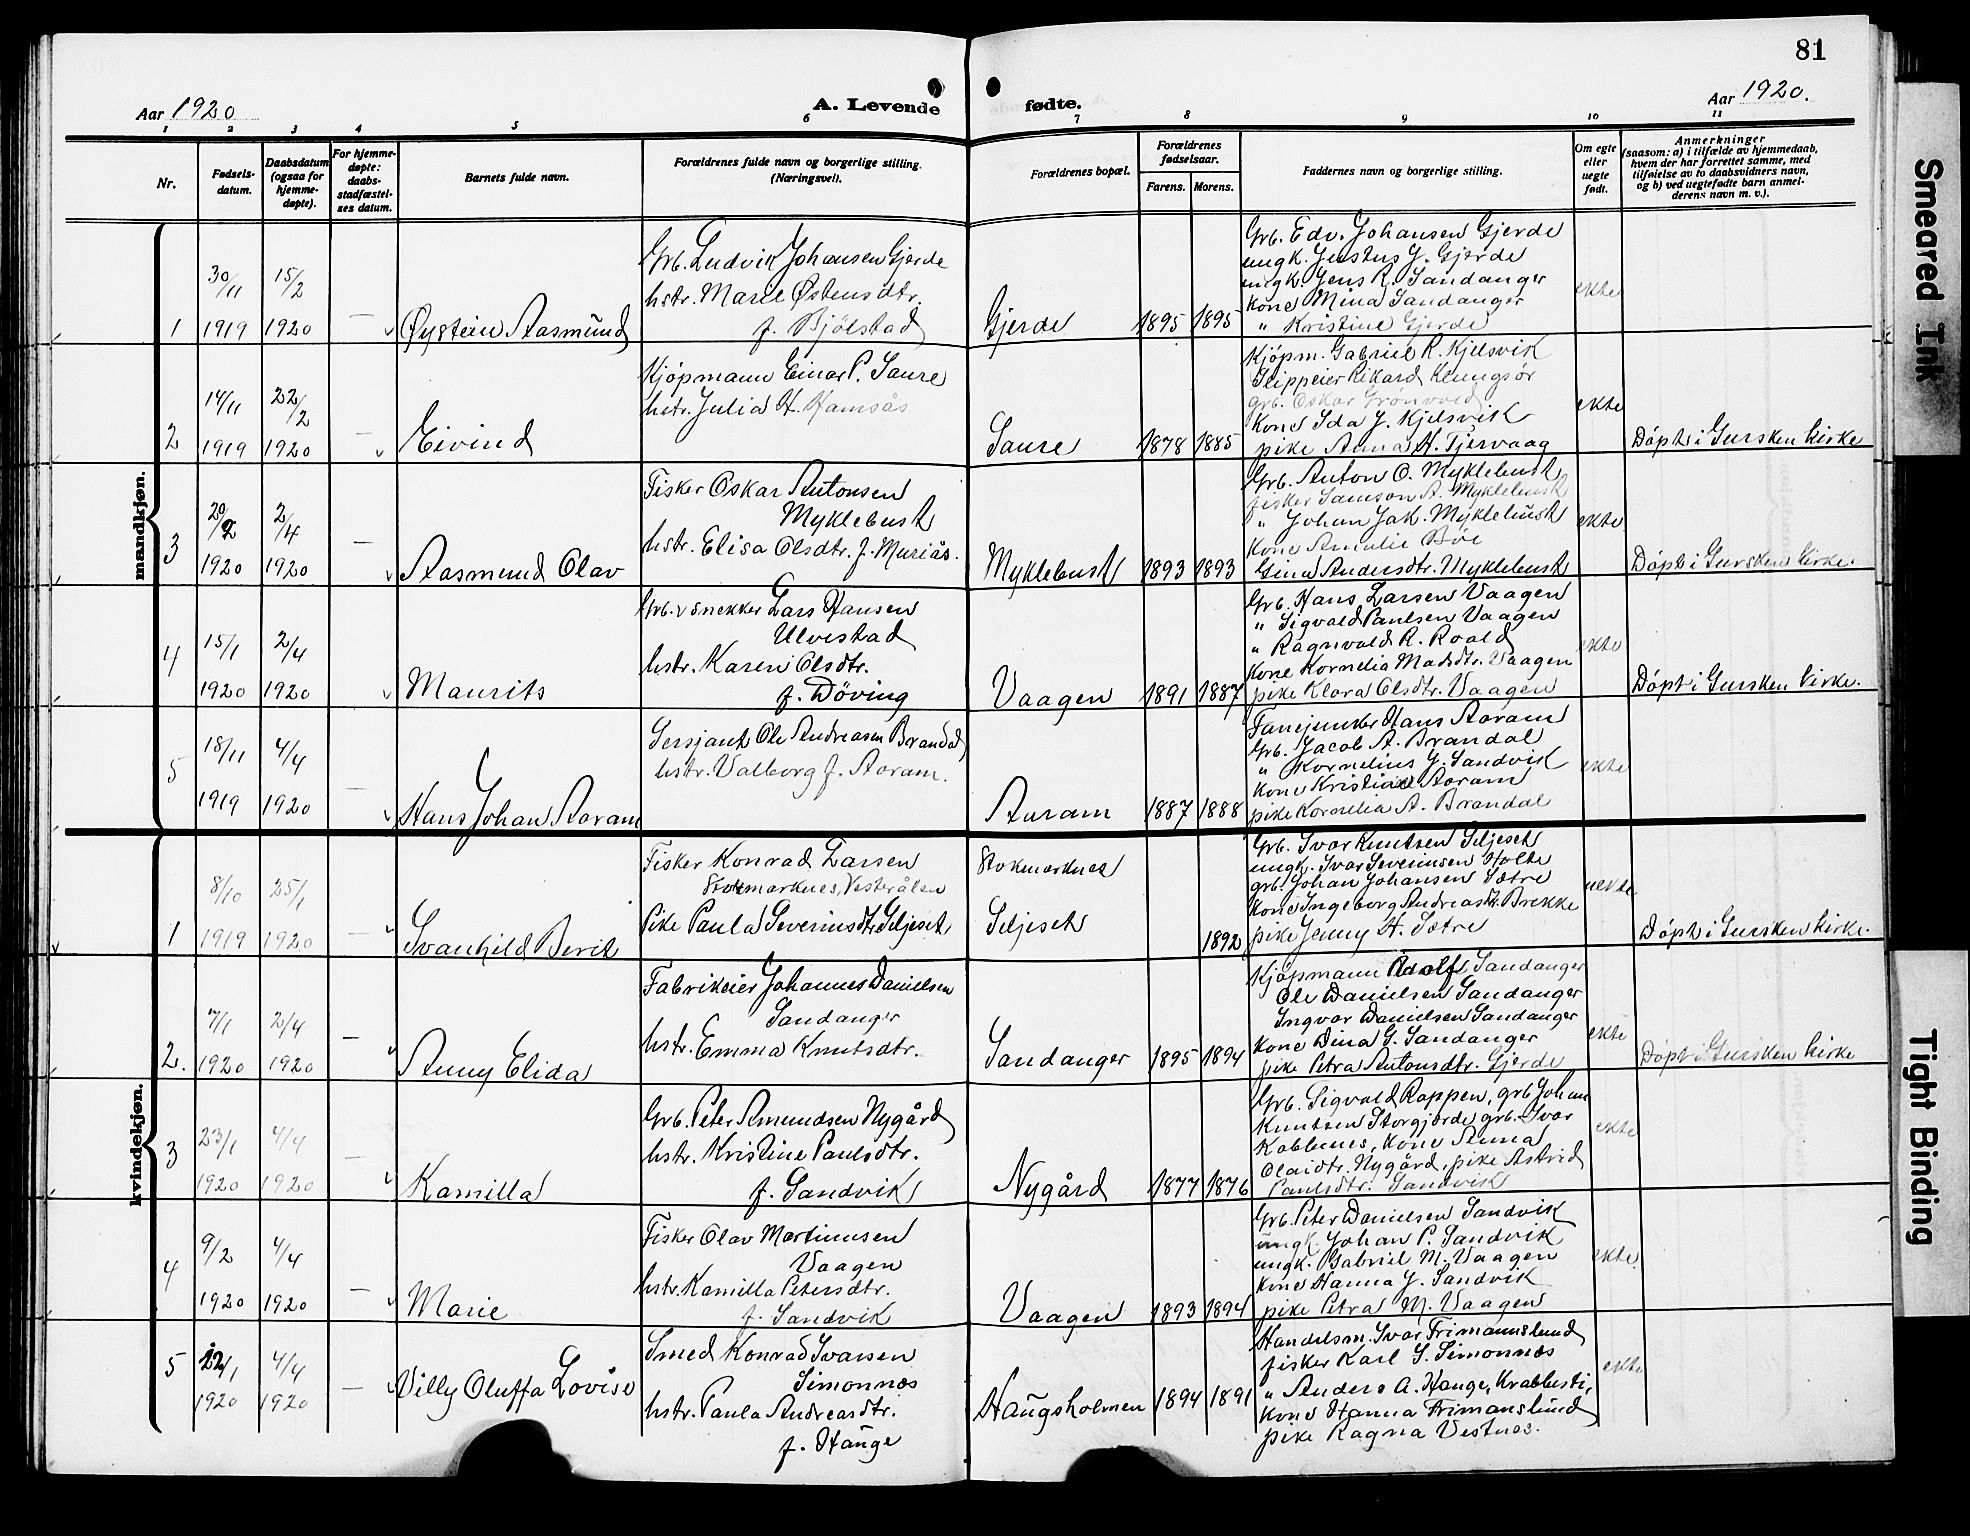 81
Aar 1920
A. Levende
fødte.
Aar 1920.
1 2 3 4 5 6 7 8 9 10 11
Nr.
Fødsels-
datum.
Daabsdatum
(ogsaa for
hjemme-
døpte).
For hjemme-
døpte:
daabs-
stadfæstel-
ses datum.
Barnets fulde navn.
Forældrenes fulde navn og borgerlige stilling.
(Næringsvei).
Forældrenes bopæl.
Forældrenes
fødselsaar.
Farens. Morens.
Faddernes navn og borgerlige stilling.
Om egte
eller
uegte
født.
Anmerkninger
(saasom: a) i tilfælde av hjemmedaab,
hvem der har forrettet samme, med
tilføielse av to daabsvidners navn,
og b) ved uegtefødte barn anmel-
derens navn m. v.).
mandkjøn.
1
30/11
1919
15/2
1920
—
Øystein Aasmund
Grb. Ludvik Johansen Gjerde
hstr. Marie Østensdtr.
f. Bjölstad
Gjerde
1895 1895
Grb. Edv. Johansen Gjerde
ungk. Justus J. Gjerde
ungk. Jens R. Sandanger
kone Mina Sandanger
" Kristine Gjerde
ekte
2
14/11
1919
22/2
1920
—
Eivind
Kjöpmann Einar P. Saure
hstr. Julia H. Hamsås
Saure
1878 1885
Kjöpm. Gabriel R. Kjelsvik
Slippeier Rikard Klungsör
grb. Oskar Grönvold
Kone Ida J. Kjelsvik
pike Anna H. Tjervaag
ekte
Döpt i Gursken kirke
3
20/2
1920
2/4
1920
—
Aasmund Olav
Fisker Oskar Antonsen
Myklebust
hstr. Elisa Olsdtr. f. Muriås.
Myklebust
1893 1893
Grb. Anton O. Myklebust
fisker Samson A. Myklebust
" Johan Jak. Myklebust
Kone Amalie Böe
Gina Andersdtr. Myklebust
ekte
Döpt i Gursken kirke.
4
15/1
1920
2/4
1920
Maurits
Grb. v snekker Lars Hansen
Ulvestad
hstr. Karen Olsdtr.
f. Döving
Vaagen
1891 1887
Grb. Hans Larsen Vaagen
" Sigvald Paulsen Vaagen
" Ragnvald R. Roald
Kone Kornelia Madsdtr. Vaagen
pike Klara Olsdtr. Vaagen
ekte
Döpt i Gursken kirke.
5
18/11
1919
4/4
1920
—
Hans Johan Aaram
Sersjant Ole Andreasen Brandal
hstr. Valborg f. Aaram.
Aaram
1887 1888
Fanejunker Hans Aaram
Grb. Jacob A. Brandal
" Kornelius J. Sandvik
Kone Kristiane Aaram
pike Kornelia A. Brandal
ekte
kvindekjøn.
1
8/10
1919
25/1
1920
—
Svanhild Berit
Fisker Konrad Larsen
Stokmarknes, Vesterålen
Pike Paula Severinsdtr. Seljeset
Stokmarknes
Seljeset
1892
Grb. Ivar Knutsen Seljeset
ungk. Ivar Severinsen Holte
grb. Johan Johansen Sætre
Kone Ingeborg Andreasdtr. Brekke
pike Jenny H. Sætre
uekte
Döpt i Gursken kirke.
2.
7/1
1920
2/4
1920
—
Anny Elida
Fabrikeier Johannes Danielsen
Sandanger
hstr. Emma Knutsdtr.
Sandanger
1895 1894
Kjöpmann Adolf Sandanger
Ole Danielsen Sandanger
Ingvar Danielsen Sandanger
Kone Dina G. Sandanger
pike Petra Antonsdtr. Gjerde
ekte
Döpt i Gursken kirke
3
23/1
1920
4/4
1920
—
Kamilla
Grb. Peter Amundsen Nygård
hstr. Kristine Paulsdtr.
f. Sandvik
Nygård
1877 1876
Grb. Sigvald Roppen, grb Johan
Knutsen Storgjerde, grb. Ivar
Koblenes, Kone Anna
Olaidtr. Nygård, pike Astrid
Paulsdtr. Sandvik
ekte
4
9/2
1920
4/4
1920
—
Marie
Fisker Olav Martinusen
Vaagen
hstr. Kamilla Petersdtr.
f. Sandvik
Vaagen
1893 1894
Grb. Peter Danielsen Sandvik
ungk. Johan P. Sandvik
ungk. Gabriel M. Vaagen
Kone Hanna J. Sandvik
pike Petra M. Vaagen
ekte.
5
22/1
1920
4/4
1920
—
Villy Oluffa Lovise
Smed Konrad Ivarsen
Simonnes
hstr. Paula Andreasdtr.
f. Hauge
Haugsholmen
1894 1891
Handelsm. Ivar Frimannslund
fisker Karl S. Simonnes
" Anders A. Hauge, Krabbesti,
Kone Hanna Frimanslund
pike Ragna Vestnes.
ekte
Smeared Ink
Tight Binding